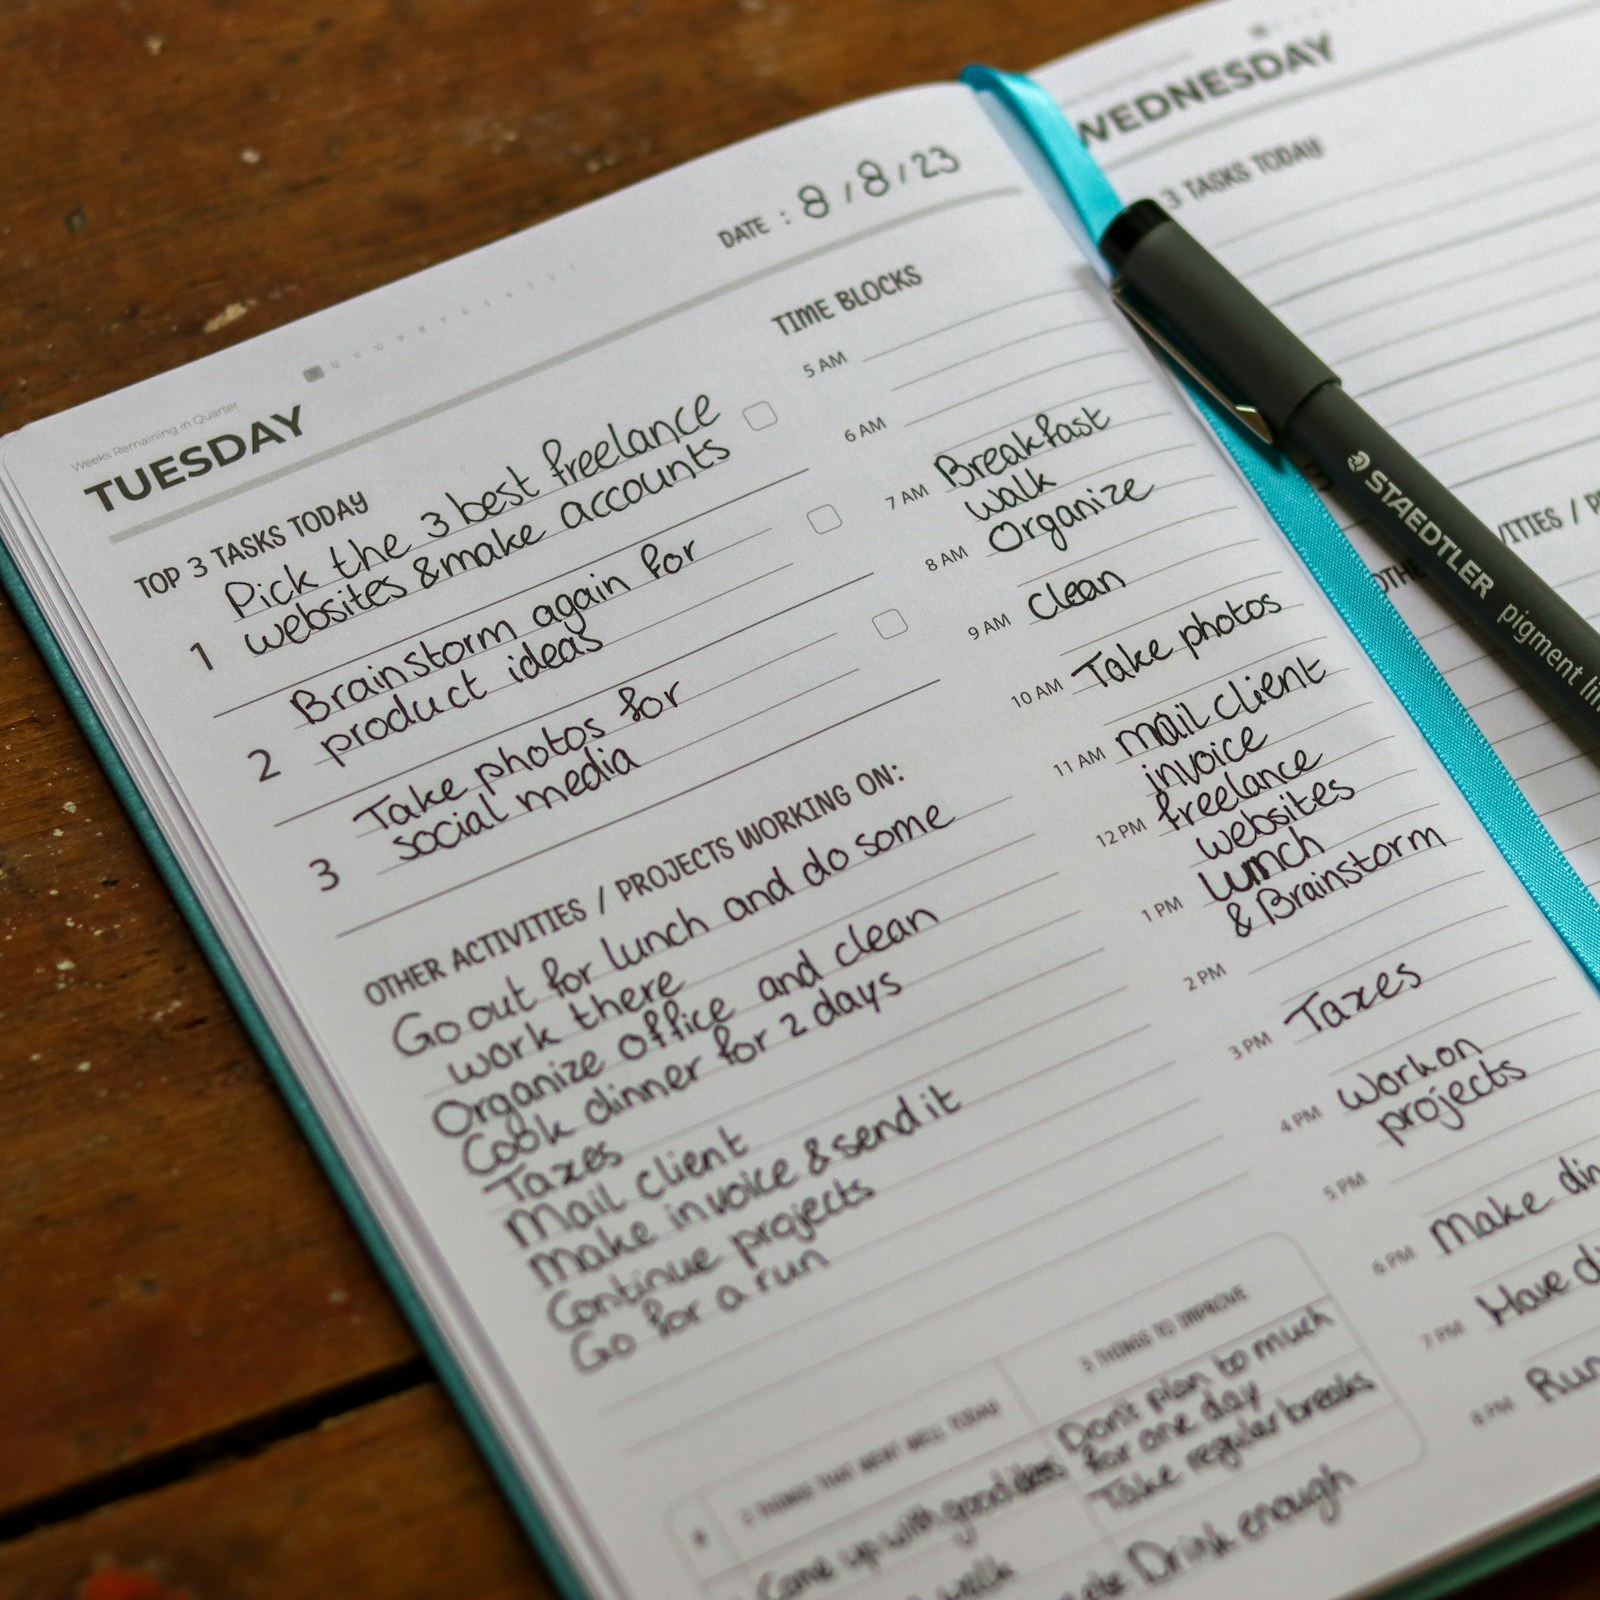 Weeks Remaining in Quarter
TUESDAY
DATE : 8/8/23
TOP 3 TASKS TODAY
1
Pick the 3 best freelance
websites & make accounts
2
Brainstorm again for
product ideas
3
Take photos for
social media
OTHER ACTIVITIES / PROJECTS WORKING ON:
Go out for lunch and do some
work there
Organize office and clean
Cook dinner for 2 days
Taxes
Mail client
Make invoice & send it
Continue projects
Go for a run
TIME BLOCKS
5 AM
6 AM
7 AM Breakfast
walk
8 AM Organize
9 AM Clean
10 AM Take photos
11 AM mail client
invoice
12 PM freelance
websites
1 PM Lunch
& Brainstorm
2 PM
3 PM Taxes
4 PM Work on
projects
5 PM
6 PM Make
7 PM Have
8 PM Run
3 THINGS THAT WENT WELL TODAY
Came up with good ideas
walk
3 THINGS TO IMPROVE
Don't plan to much
for one day
Take regular breaks
Drink enough
WEDNESDAY
3 TASKS TODAY
3
OTHE
VITIES /
STAEDTLER pigment